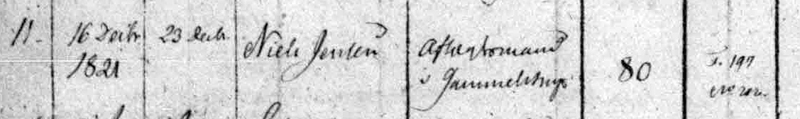 11. 16 Decbr 23 Decbr. Niels Jensen Aftægtsmand
1821 i Gammelstrup 80 F. 197
No